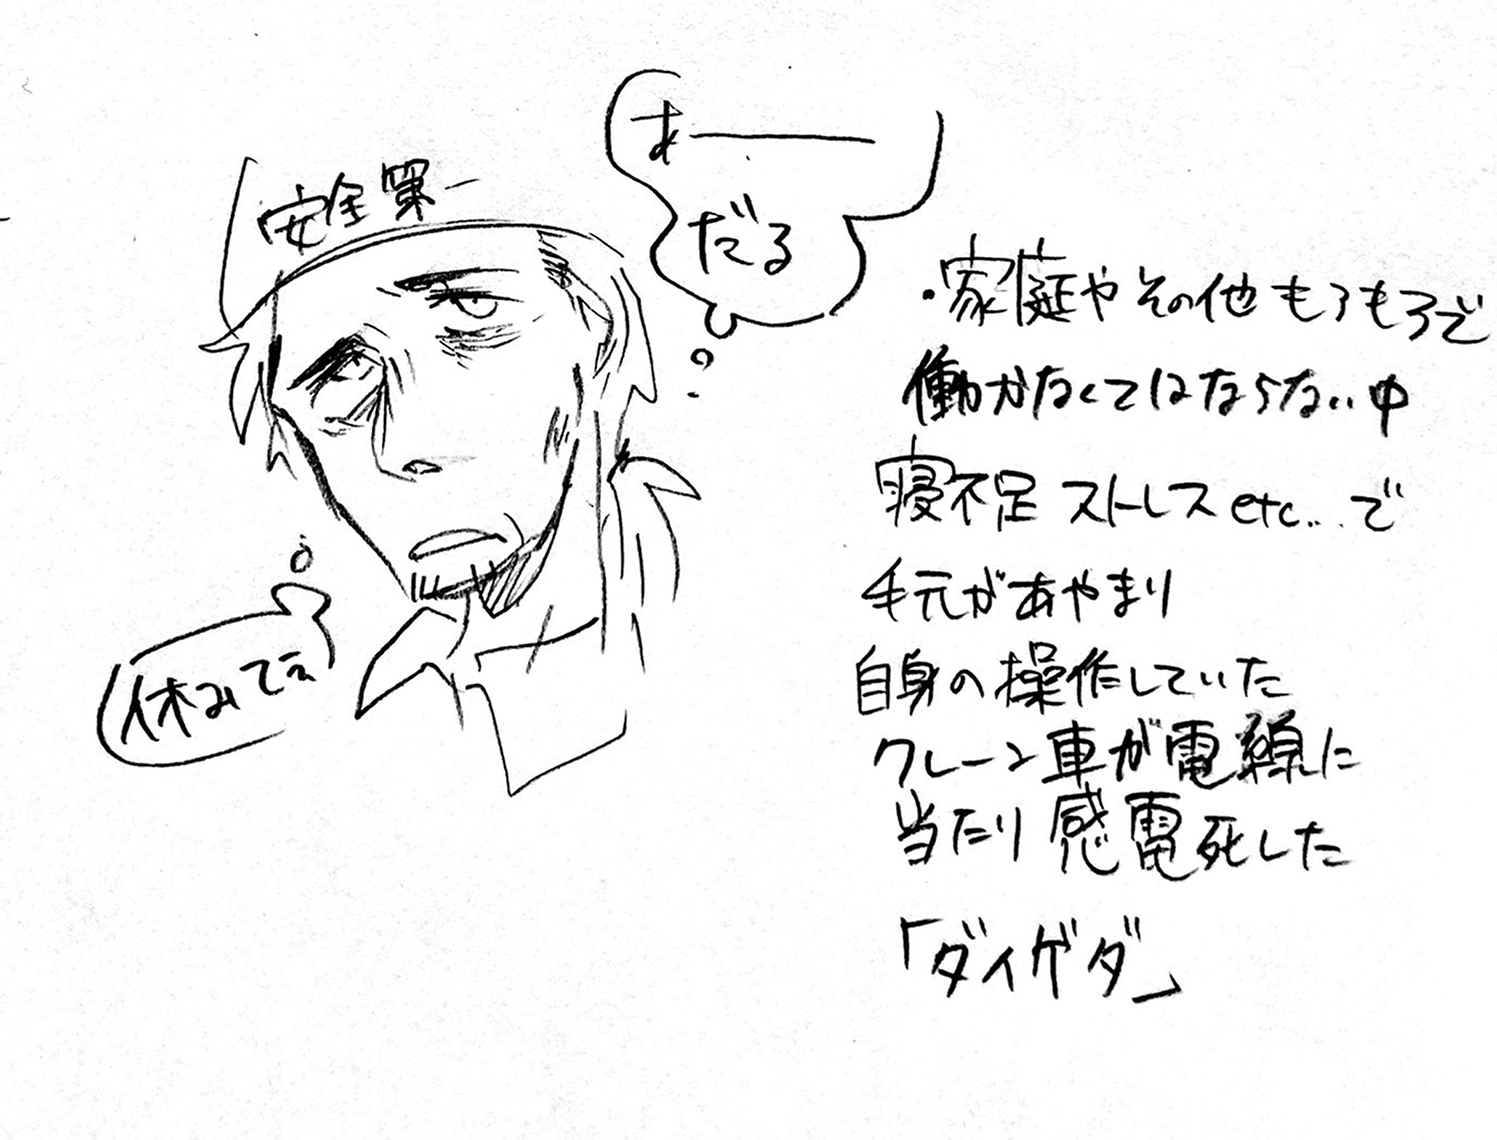 安全第一
あー
だる
休みてえ
・家庭やその他もろもろで
働かなくてはならない中
寝不足 ストレスetc...で
手元があやまり
自身の操作していた
クレーン車が電線に
当たり感電死した
「ダイゲダ」